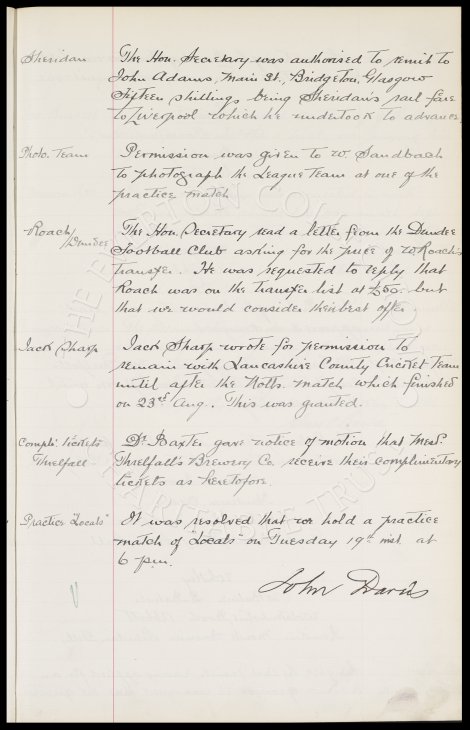 Sheridan
The Hon. Secretary was authorised to remit to
John Adams, Main St., Bridgeton, Glasgow
Fifteen shillings being Sheridan's rail fare
to Liverpool which he undertook to advance.
Photo. Team
Permission was given to W. Sandbach
to photograph the League Team at one of the
practice match
Roach/Dundee
The Hon. Secretary read a letter from the Dundee
Football Club asking for the price of W Roach's
transfer. He was requested to reply that
Roach was on the transfer list at £50. but
that we would consider their best offer
Jack Sharp
Jack Sharp wrote for permission to
remain with Lancashire County Cricket Team
until after the Notts. match which finished
on 23rd Aug. This was granted.
Compl. tickets
Threlfall
Dr. Baxter gave notice of motion that Messrs.
Threlfall's Brewery Co. receive their complimentary
tickets as heretofore.
Practice "Locals"
It was resolved that we hold a practice
match of "Locals" on Tuesday 19th inst. at
6 p.m.
John Davies
THE EVERTON COLLECTION
CHARITABLE TRUST